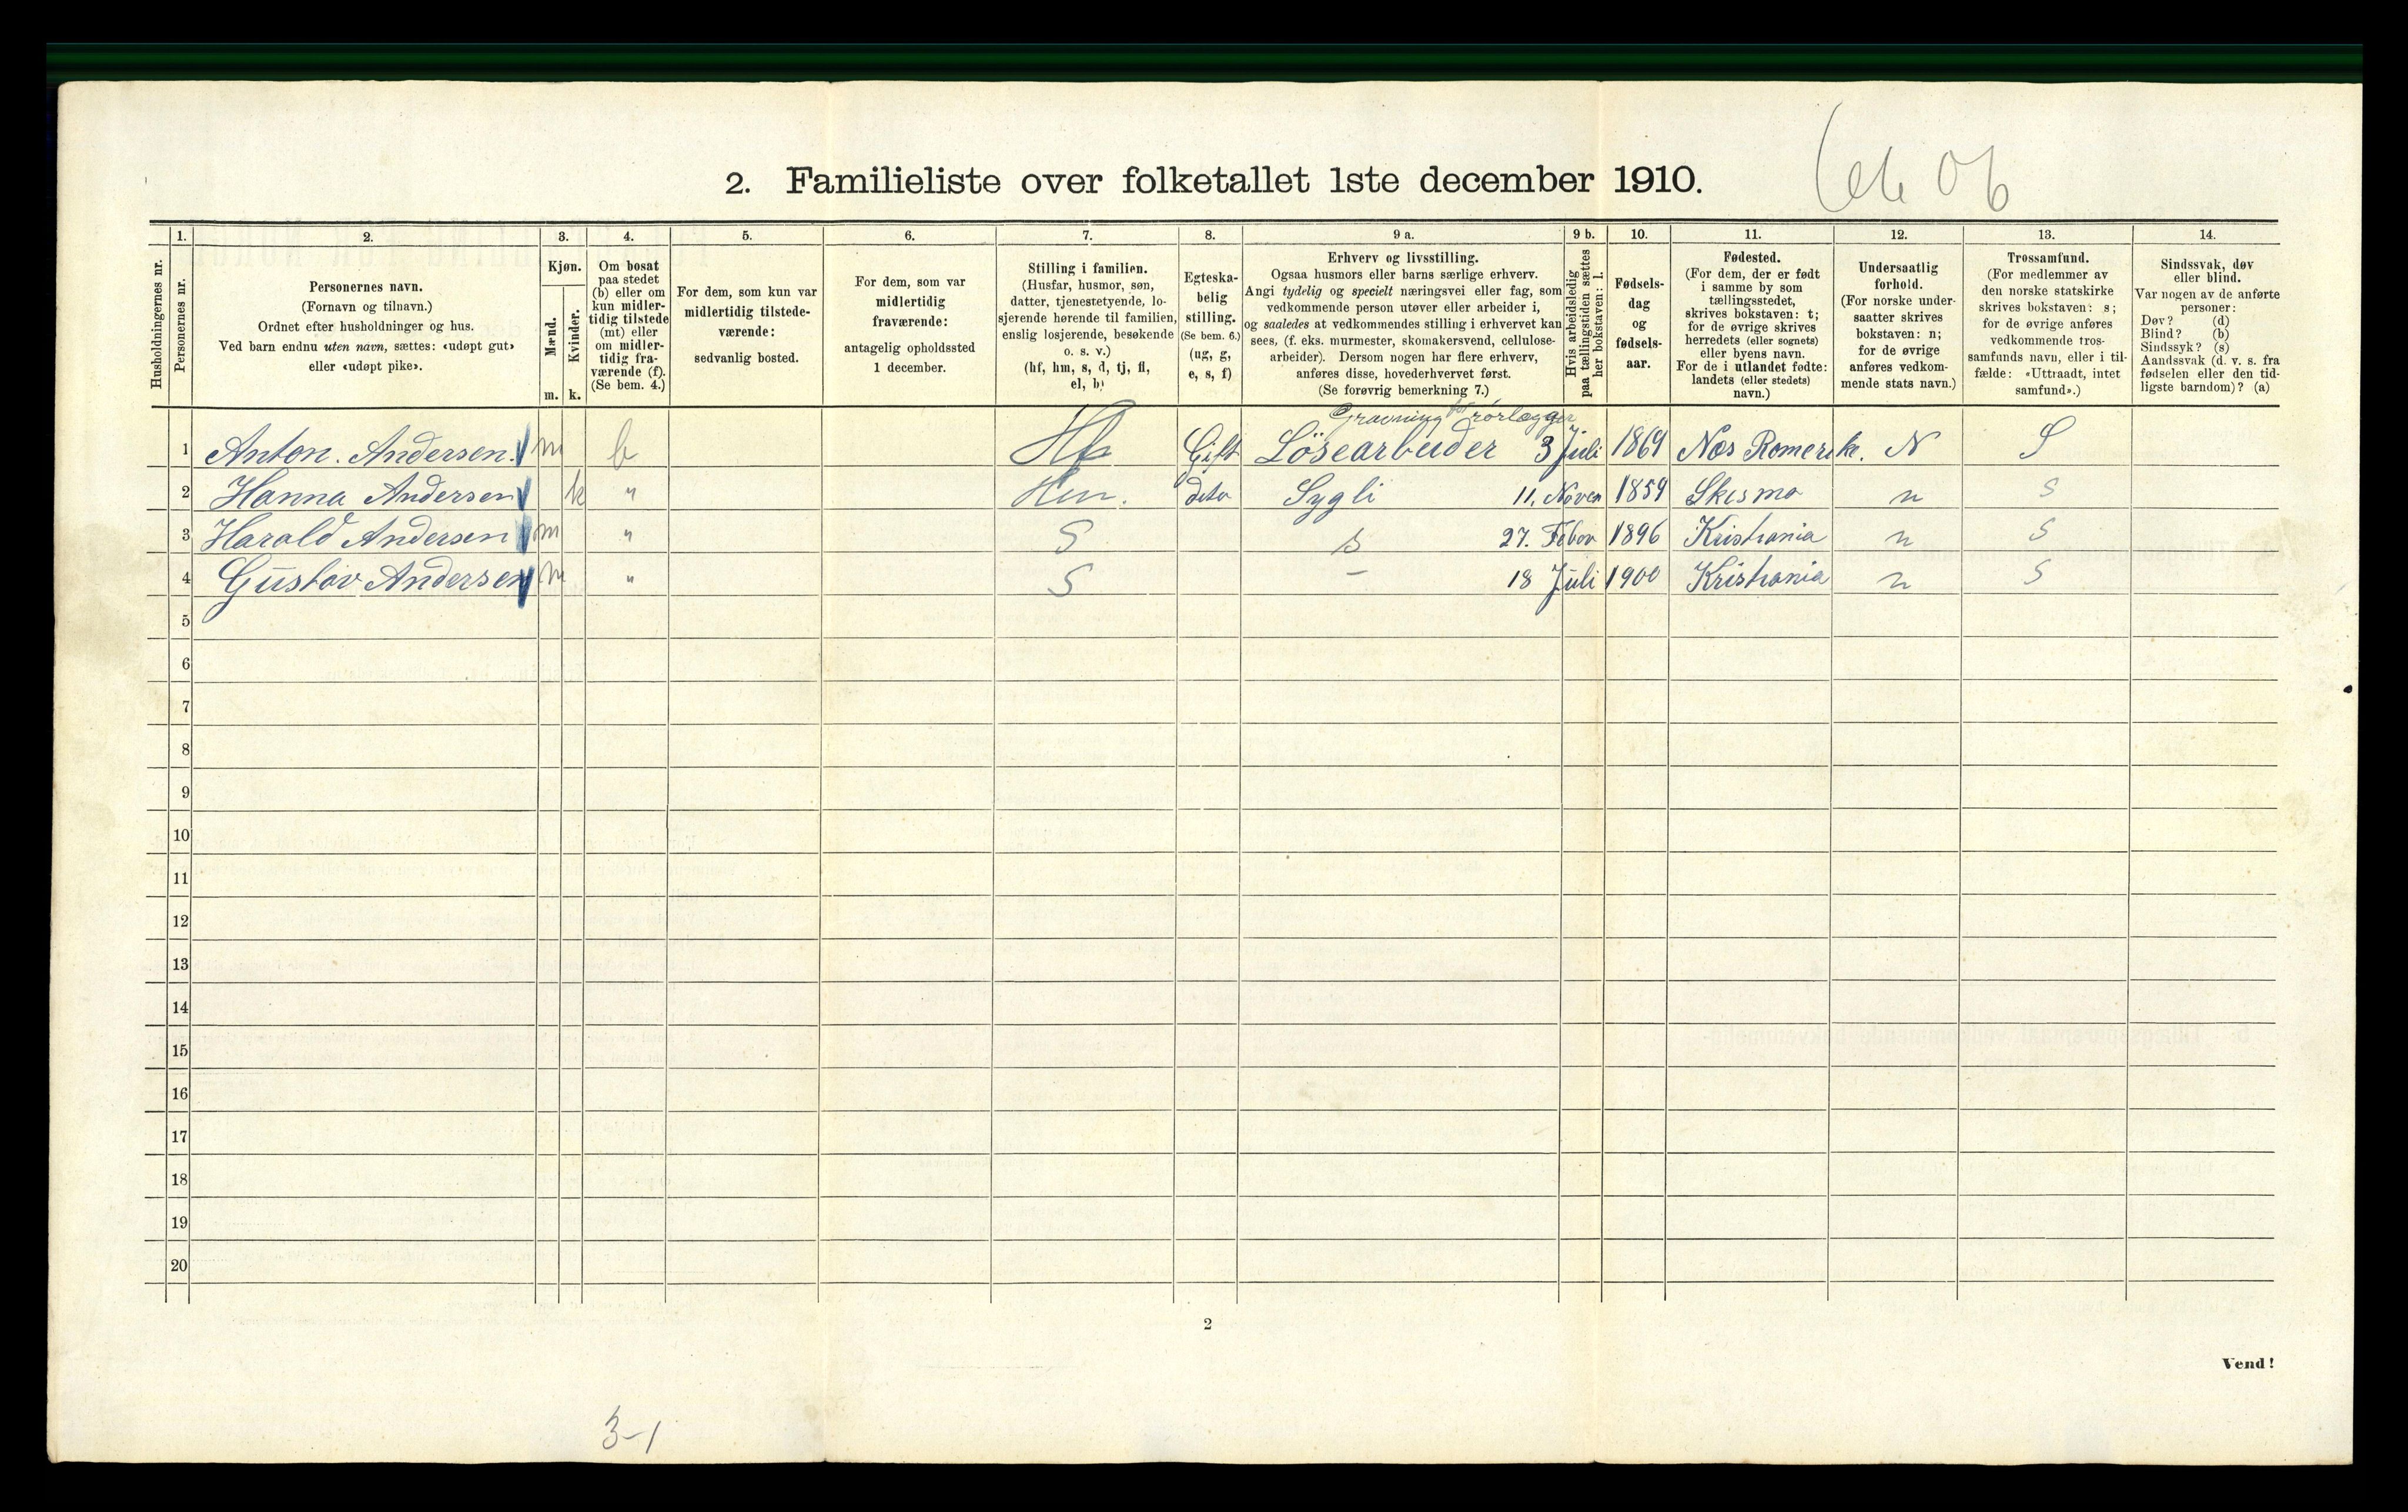 2. Familieliste over folketallet 1ste december 1910.
1. 2. 3. 4. 5. 6. 7. 8. 9 a. 9 b. 10. 11. 12. 13. 14.
Husholdningernes nr.
Personernes nr.
Personernes navn.
(Fornavn og tilnavn.)
Ordnet efter husholdninger og hus.
Ved barn endnu uten navn, sættes: «udøpt gut»
eller «udøpt pike».
Kjøn.
Mænd.
m.
Kvinder.
k.
Om bosat
paa stedet
(b) eller om
kun midler-
tidig tilstede
(mt) eller
om midler-
tidig fra-
værende (f).
(Se bem. 4.)
For dem, som kun var
midlertidig tilstede-
værende:
sedvanlig bosted.
For dem, som var
midlertidig
fraværende:
antagelig opholdssted
1 december.
Stilling i familien.
(Husfar, husmor, søn,
datter, tjenestetyende, lo-
sjerende hørende til familien,
enslig losjerende, besøkende
o. s. v.)
(hf, hm, s, d, tj, fl,
el, b)
Egteska-
belig
stilling.
(Se bem. 6.)
(ug, g,
e, s, f)
Erhverv og livsstilling.
Ogsaa husmors eller barns særlige erhverv.
Angi tydelig og specielt næringsvei eller fag, som
vedkommende person utøver eller arbeider i,
og saaledes at vedkommendes stilling i erhvervet kan
sees, (f. eks. murmester, skomakersvend, cellulose-
arbeider). Dersom nogen har flere erhverv,
anføres disse, hovederhvervet først.
(Se forøvrig bemerkning 7.)
Hvis arbeidsledig
paa tællingstiden sættes
her bokstaven: l.
Fødsels-
dag
og
fødsels-
aar.
Fødested.
(For dem, der er født
i samme by som
tællingsstedet,
skrives bokstaven: t;
for de øvrige skrives
herredets (eller sognets)
eller byens navn.
For de i utlandet fødte:
landets (eller stedets)
navn.)
Undersaatlig
forhold.
(For norske under-
saatter skrives
bokstaven: n;
for de øvrige
anføres vedkom-
mende stats navn.)
Trossamfund.
(For medlemmer av
den norske statskirke
skrives bokstaven: s;
for de øvrige anføres
vedkommende tros-
samfunds navn, eller i til-
fælde: «Uttraadt, intet
samfund».)
Sindssvak, døv
eller blind.
Var nogen av de anførte
personer:
Døv? (d)
Blind? (b)
Sindssyk? (s)
Aandssvak (d. v. s. fra
fødselen eller den tid-
ligste barndom)? (a)
Gravning for rörlægger
1 Anton. Andersen. m b Hf Gift Lösearbeider 3 Juli 1869 Nes Romerik. N S
2 Hanna Andersen k " Hm. dito Sygli 11. Novem 1859 Skesmo n S
3 Harald Andersen m " S s 27. Febr 1896 Kristiania n S
4 Gustav Andersen m " S - 18 Juli 1900 Kristiania n S
5
6
7
8
9
10
11
12
13
14
15
16
17
18
19
20
2
Vend!
3-1